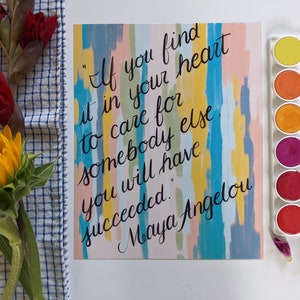 "If you find
it in your heart
to care for
somebody else,
you will have
succeeded.
Maya Angelou